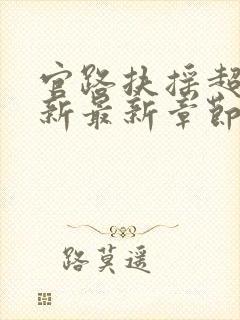 官路扶摇超
新最新章节
路莫遥